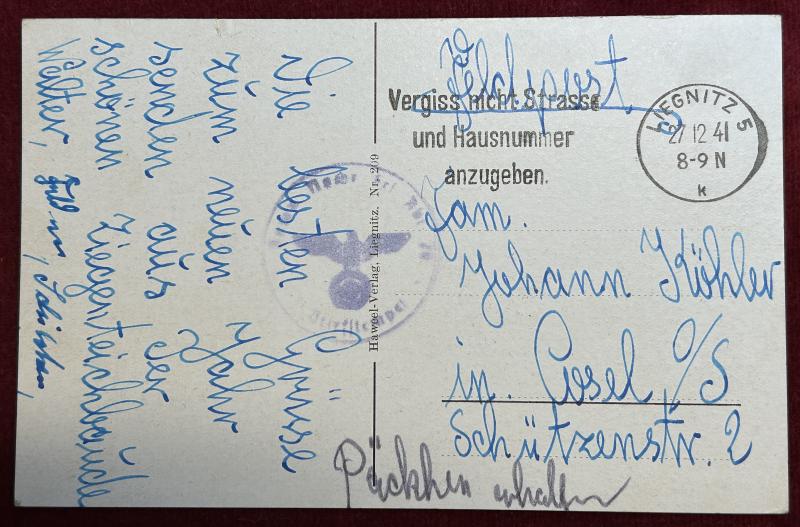 Feldpost
Vergiss nicht Strasse
und Hausnummer
anzugeben.
LIEGNITZ 5
27 12 41
8-9 N
k
Fam.
Johann Köhler
in. Cosel, O/S
Schützenstr. 2
Päckchen erhalten
Hawgel-Verlag, Liegnitz. Nr. 269
Die besten Grüsse
zum neuen Jahr
senden aus der
schönen Ziegenteichbaude
Walter,
Briefstempel